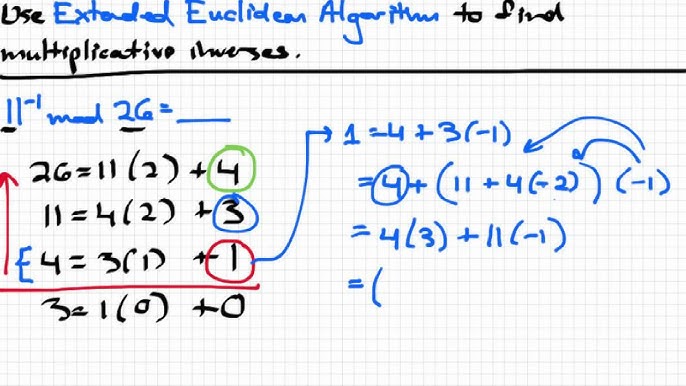 Use Extended Euclidean Algorithm to find
multiplicative inverses.
11⁻¹ mod 26 = ____
26 = 11(2) + 4
11 = 4(2) + 3
4 = 3(1) + 1
3 = 1(0) + 0
1 = 4 + 3(-1)
= 4 + (11 + 4(-2))(-1)
= 4(3) + 11(-1)
= (